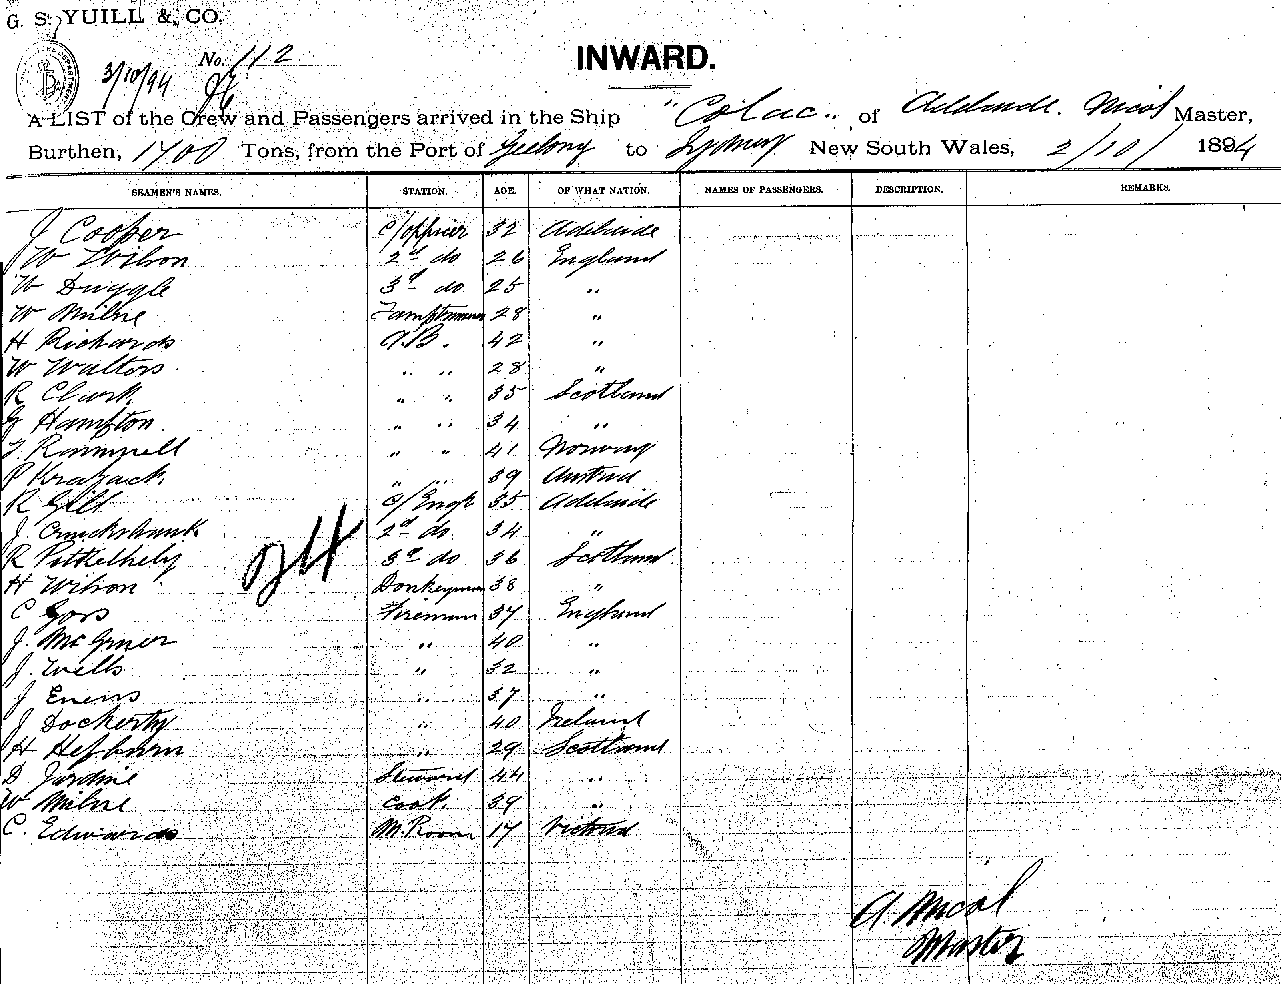 G. S. YUILL & CO.
No. 112
3/10/94
INWARD.
A LIST of the Crew and Passengers arrived in the Ship "Colac" of Adelaide. Nicol Master,
Burthen, 1400 Tons, from the Port of Geelong to Sydney New South Wales, 2/10/ 1894
SEAMEN'S NAMES. STATION. AGE. OF WHAT NATION. NAMES OF PASSENGERS. DESCRIPTION. REMARKS.
J Cooper C/Officer 32 Adelaide
W Wilson 2nd do 26 England
W Duggle 3d do 25 "
W Milne Lamptrimmer 28 "
H Richards A.B. 42 "
W Walters " " 28 "
R Clark " " 35 Scotland
G Hampton " " 34 "
" " 41 Norway
P Krajack " " 39 Austria
R Gill C/Engr 35 Adelaide
J. Cruickshank 2nd do 34 "
R 3d do 36 Scotland
H Wilson Donkeyman 38 "
C Fireman 37 England
J. " 40 "
J. Wells " 32 "
J Enens " 37 "
J Dockerty " 40 Ireland
H Hepburn " 29 Scotland
D Jardine Steward 44 "
W Milne Cook 39 "
C. Edwards M. Room 17 Victoria
24
A. Nicol
Master